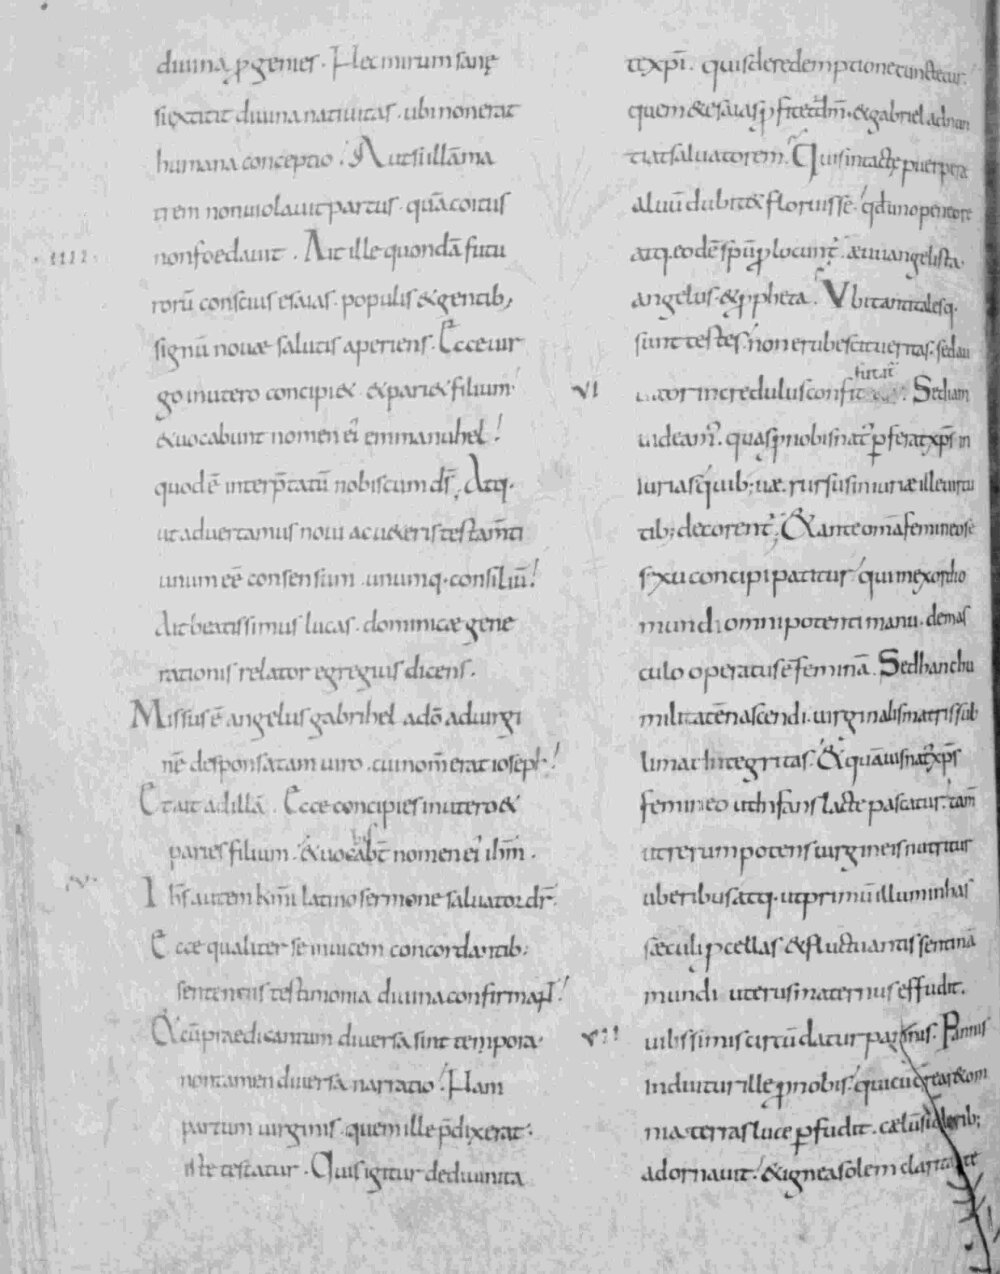 diuina ꝓgenies. Hec mirum sanę
si extitit diuina natiuitas. ubi non erat
humana conceptio. Aut si illā ma
trem non uiolauit partus. quā coitus
.IIII. non foedauit. Ait ille quondā futu
rorū conscius esaias. populis & gentib;
signū nouæ salutis aperiens. Ecce uir
go in utero concipi& & pari& filium.
& uocabunt nomen ei emmanuhel!
quod ē interp̄tatū nobiscum d̄s. Atq.
ut aduertamus noui ac u&eris testam̄ti
unum eē consensum. unumq. consiliū!
Ait beatissimus lucas. dominicæ gene
rationis relator egregius dicens.
Missus ē angelus gabrihel a dō ad uirgi
nē desponsatam uiro. cui nom̄ erat ioseph!
Et ait ad illā. Ecce concipies in utero &
paries filium. & uocabis nomen ei ih̄m.
.V. Ih̄s autem latino sermone saluator dr̄.
Ecce qualiter se inuicem concordantib;
sententiis testimonia diuina confirmant!
Et cū praedicantum diuersa sint tempora.
non tamen diuersa narratio. Nam
partum uirginis. quem ille p̄dixerat.
iste testatur. Quis igitur de diuinita
te xp̄i. quis de redemptione cunctetur.
quem & esaias ꝓfitetur dm̄. & gabriel adnun
tiat saluatorem. Quis intactę puerperæ
aluū dubit& floruisse. qd uno pen ore
atq. eodē sp̄u ꝓlocunt̄. æuuangelista.
angelus. & ꝓpheta. Ubi tanti talesq.
sunt testes. non erubescit ueritas. sed au
VI ditor incredulus confitetur. Sed iam
uideam̄. quas ꝓ nobis nat̄ ꝑferat xp̄s in
iurias. quib; uæ. rursus iniuriæ ille uirtu
tib; decorent̄. Et ante omā femineo se
sexu concipi patitur. qui in exordio
mundi omnipotenti manu. de mas
culo operatus ē feminā. Sed hanc hu
militatē nascendi. uirginalis matris sub
limat integritas. Et quāuis nat̄ xp̄s
femineo ut infans lacte pascatur. tam̄
ut rerum potens uirgineis nutritur
uberibus. atq. ut primū illum inhas
sæculi ꝓcellas & fluctuantis sentinā
mundi uterus maternus effudit.
VII uilissimis circūdatur pannis. Pannis
induitur ille ꝓ nobis. qui cūcreat& om
nia. terras luce ꝑfudit. cælū siderib;
adornauit! & igneasolem claritate